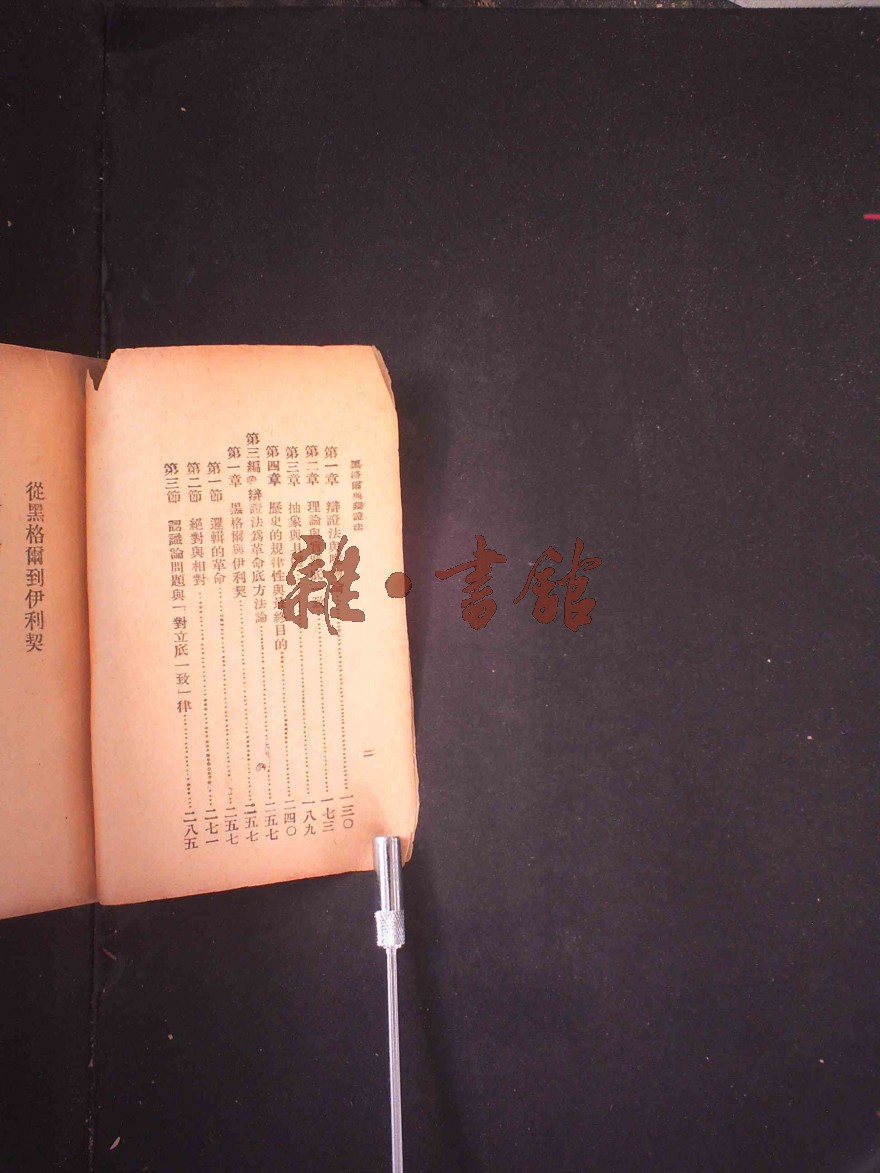 黑格爾與辯證法
二
第一章 辯證法與 一三〇
第二章 理論與 一七三
第三章 抽象與具 一八九
第四章 歷史的規律性與最終目的 二四〇
第三編 辯證法為革命底方法論 二五七
第一章 黑格爾與伊利契 二五七
第一節 邏輯的革命 二五七
第二節 絕對與相對 二七一
第三節 認識論問題與「對立底一致」律 二八五
從黑格爾到伊利契
雜·書館